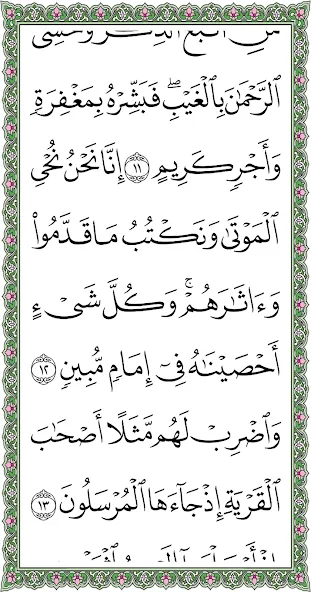 ٱلرَّحْمَٰنَ بِٱلْغَيْبِ ۖ فَبَشِّرْهُ بِمَغْفِرَةٍ
وَأَجْرٍ كَرِيمٍ ١١ إِنَّا نَحْنُ نُحْىِ
ٱلْمَوْتَىٰ وَنَكْتُبُ مَا قَدَّمُوا۟
وَءَاثَٰرَهُمْ ۚ وَكُلَّ شَىْءٍ
أَحْصَيْنَٰهُ فِىٓ إِمَامٍ مُّبِينٍ ١٢
وَٱضْرِبْ لَهُم مَّثَلًا أَصْحَٰبَ
ٱلْقَرْيَةِ إِذْ جَآءَهَا ٱلْمُرْسَلُونَ ١٣